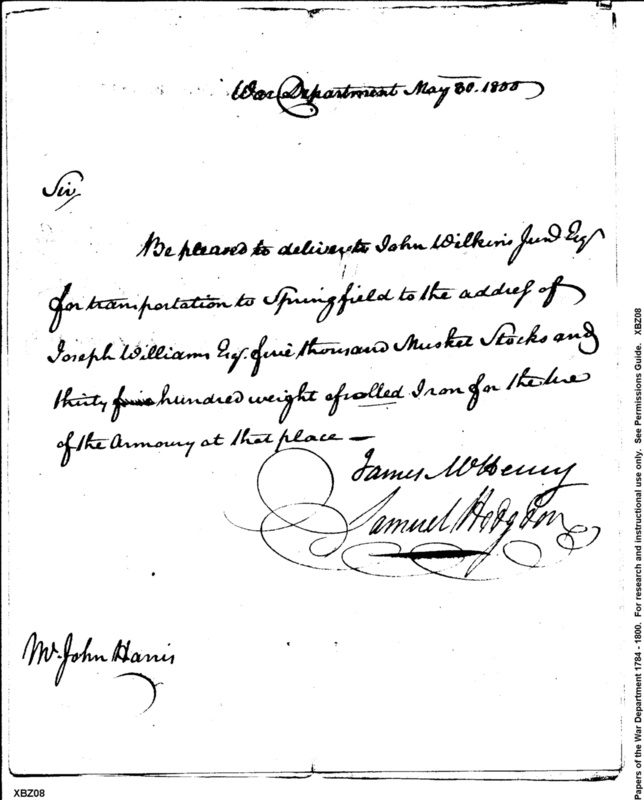 War Department May 30. 1800
Sir,
Be pleased to deliver to John Wilkins Junr Esqr
for transportation to Springfield to the address of
Joseph Williams Esqr. five thousand Musket Stocks and
thirty five hundred weight of rolled Iron for the use
of the Armoury at that place —
James McHenry
Samuel Hodgdon
Mr. John Harris
XBZ08
Papers of the War Department 1784 - 1800. For research and instructional use only. See Permissions Guide. XBZ08